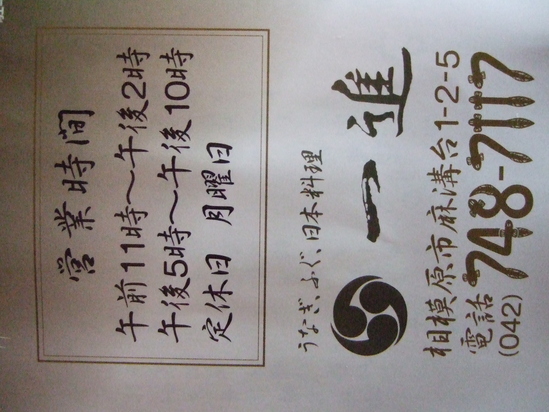 営業時間
午前11時～午後2時
午後5時～午後10時
定休日 月曜日
うなぎ、ふぐ、日本料理
一進
相模原市麻溝台1-2-5
電話
(042)748-7117